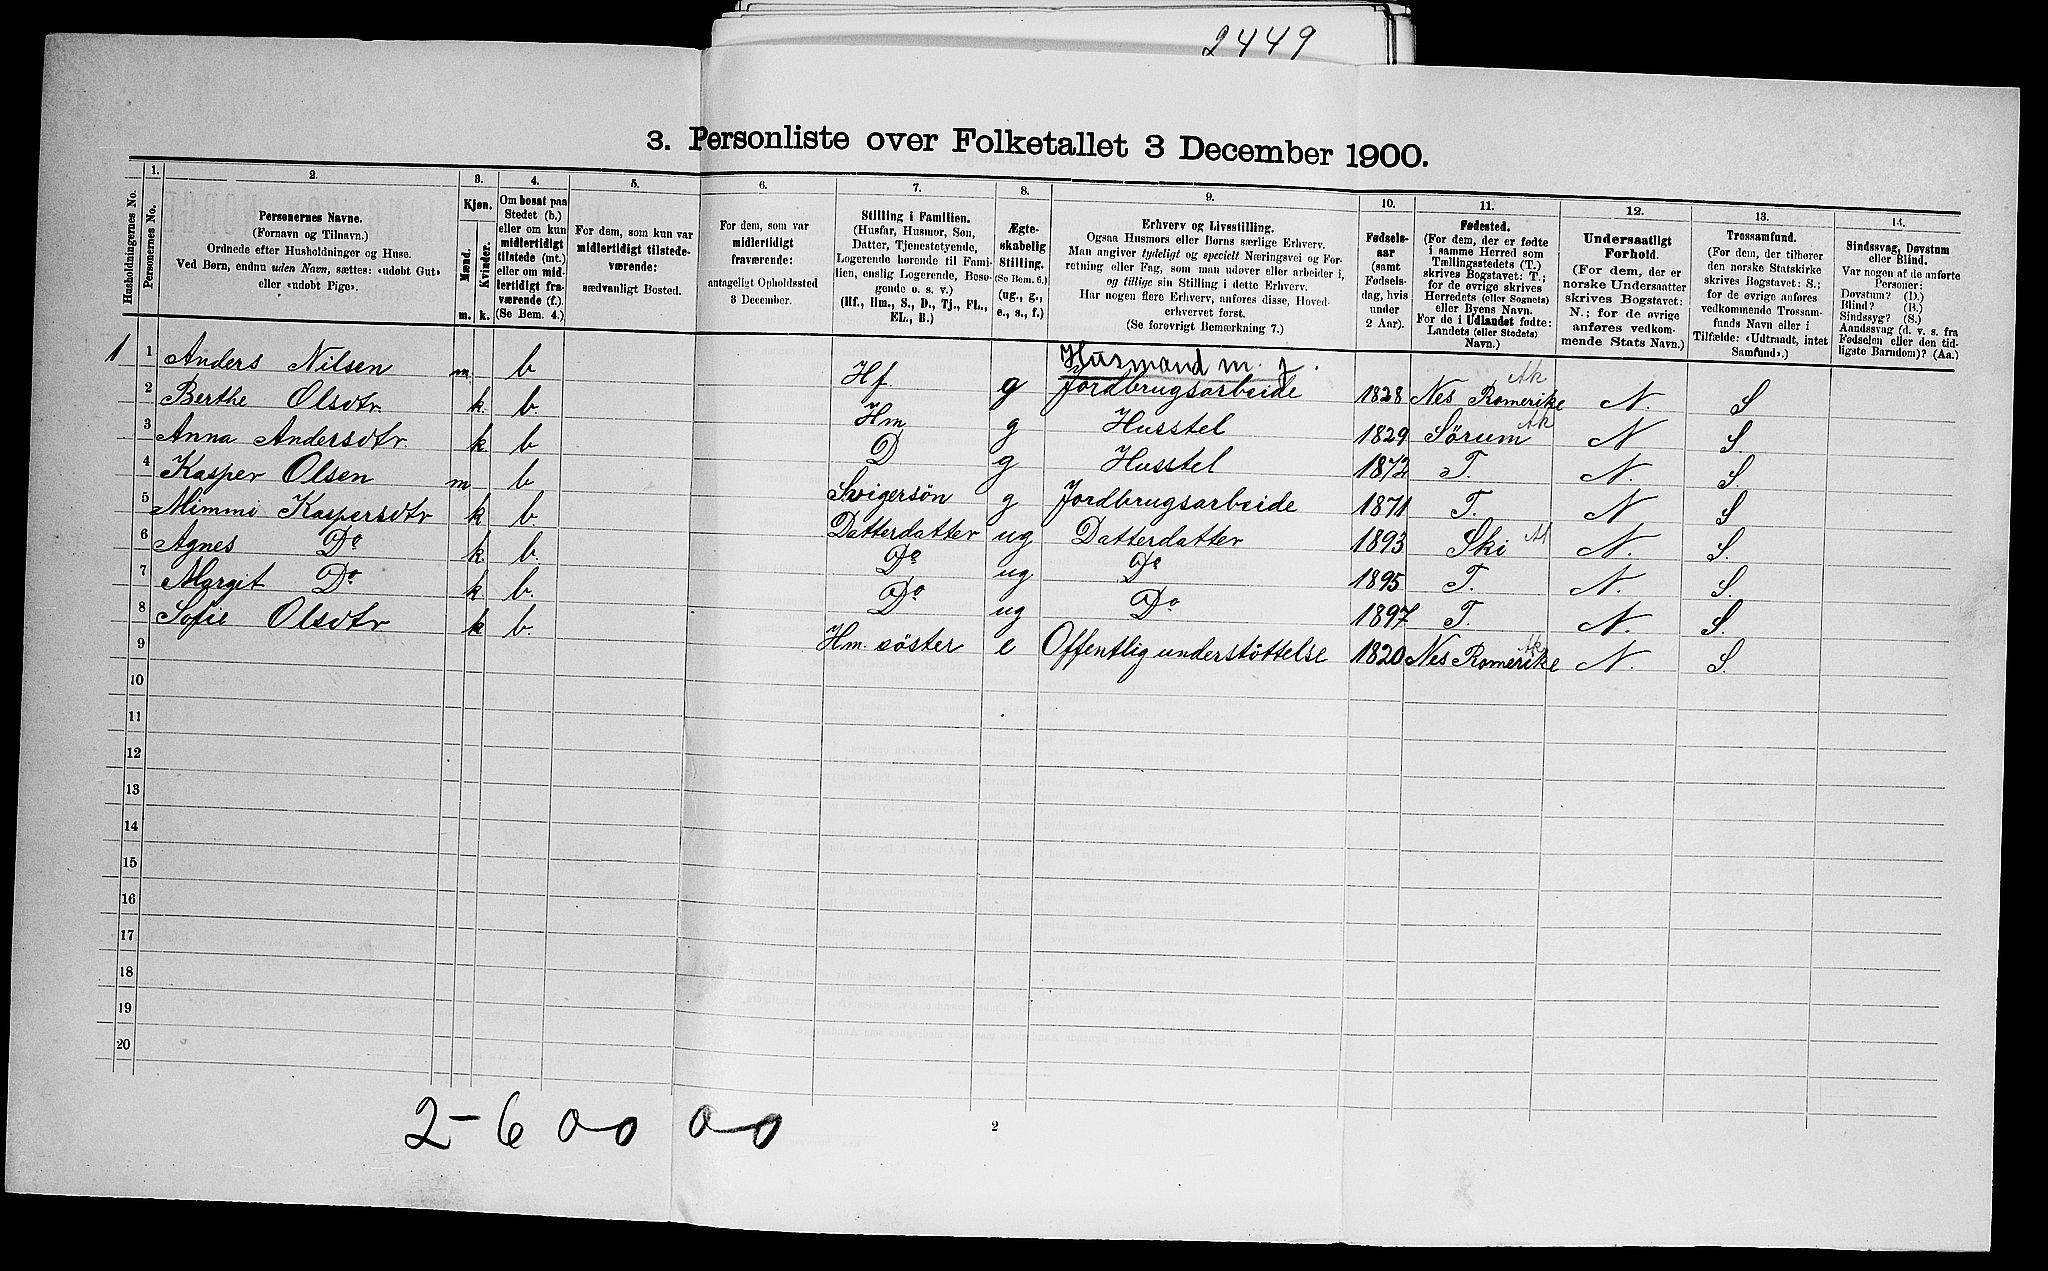 2449
3. Personliste over Folketallet 3 December 1900.
Husholdningernes No.
1.
Personernes No.
2.
Personernes Navne.
(Fornavn og Tilnavn.)
Ordnede efter Husholdninger og Huse.
Ved Børn, endnu uden Navn, sættes: «udobt Gut»
eller «udobt Pige».
3.
Kjøn.
Mænd.
Kvinder.
m.
k.
4.
Om bosat paa
Stedet (b.)
eller om kun
midlertidigt
tilstede (mt.)
eller om mid-
lertidigt fra-
værende (f.).
(Se Bem. 4.)
5.
For dem, som kun var
midlertidigt tilstede-
værende:
sædvanligt Bosted.
6.
For dem, som var
midlertidigt
fraværende:
antageligt Opholdssted
3 December.
7.
Stilling i Familien.
(Husfar, Husmor, Søn,
Datter, Tjenestetyende,
Logerende hørende til Fami-
lien, enslig Logerende, Besø-
gende o. s. v.)
(Hf., Hm., S., D., Tj., FL.,
EL., B.)
8.
Ægte-
skabelig
Stilling.
(Se Bem. 6.)
(ug., g.,
e., s., f.)
9.
Erhverv og Livsstilling.
Ogsaa Husmors eller Børns særlige Erhverv.
Man angiver tydeligt og specielt Næringsvei og For-
retning eller Fag, som man udøver eller arbeider i,
og tillige sin Stilling i dette Erhverv.
Har nogen flere Erhverv, anføres disse, Hoved-
erhvervet først.
(Se forøvrigt Bemærkning 7.)
10.
Fødsels-
aar
(samt
Fødsels-
dag, hvis
under
2 Aar).
11.
Fødested.
(For dem, der er fødte
i samme Herred som
Tællingsstedets (T.)
skrives Bogstavet: T.;
for de øvrige skrives
Herredets (eller Sognets)
eller Byens Navn.
For de i Udlandet fødte:
Landets (eller Stedets)
Navn.)
12.
Undersaatligt
Forhold.
(For dem, der er
norske Undersaatter
skrives Bogstavet:
N.; for de øvrige
anføres vedkom-
mende Stats Navn.)
13.
Trossamfund.
(For dem, der tilhører
den norske Statskirke
skrives Bogstavet: S.;
for de øvrige anføres
vedkommende Trossam-
funds Navn eller i
Tilfælde: «Udtraadt, intet
Samfund».)
14.
Sindssvag, Døvstum
eller Blind.
Var nogen af de anførte
Personer:
Døvstum? (D.)
Blind? (B.)
Sindssyg? (S.)
Aandssvag (d. v. s. fra
Fødselen eller den tid-
ligste Barndom)? (Aa.)
1 1 Anders Nilsen m. b Hf. g Husmand m. j. Jordbrugsarbeide 1828 Nes Romerike Ak N. S
2 Berthe Olsdtr. k. b. Hm g Husstel 1829 Sørum Ak N S.
3 Anna Andersdtr. k. b D g Husstel 1872 T. N. S.
4 Kasper Olsen m b Svigersön g Jordbrugsarbeide 1871 T. N S
5 Mimmi Kaspersdtr k b. Datterdatter ug Datterdatter 1893 Ski Ak N. S.
6 Agnes Do k b. Do ug Do 1895 T. N. S.
7 Margit Do k b. Do ug Do 1897 T. N. S.
8 Sofie Olsdtr k b. Hm. söster e Offentlig understöttelse 1820 Nes Romerike Ak N. S.
9
10
11
12
13
14
15
16
17
18
19
20
2-6 0-0 0-0
2